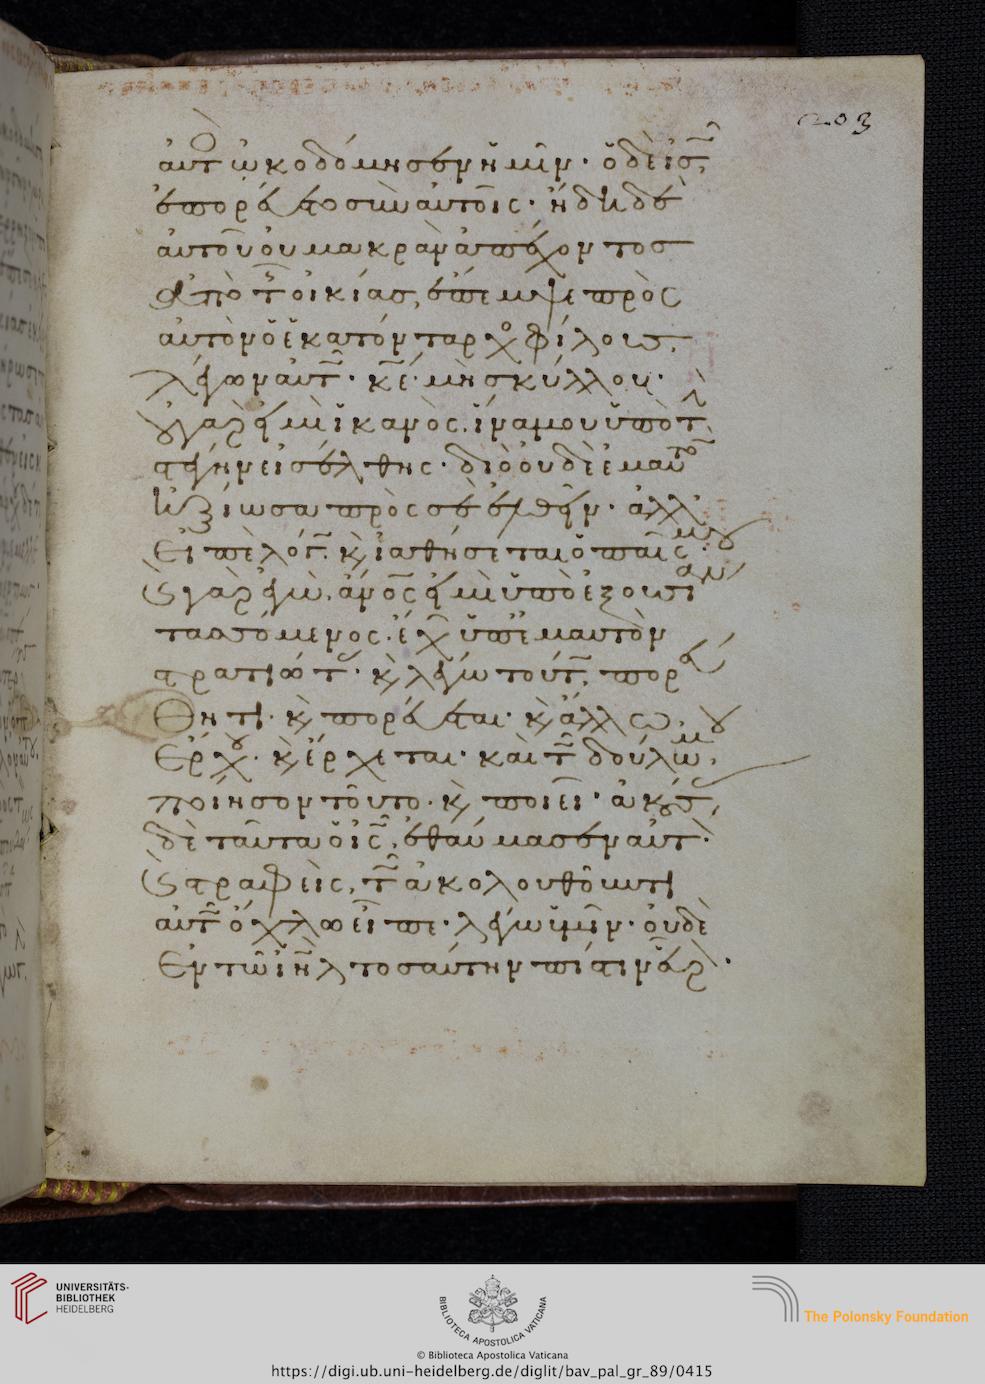 203
αὐτ ὠκοδόμησεν ἡμῖν· ὁ δὲ ἰς
ἐπορεύετο σὺν αὐτοῖς· ἤδη δὲ
αὐτοῦ οὐ μακρὰν ἀπέχοντος
ἀπὸ τ οἰκίας, ἔπεμψε πρὸς
αὐτὸν ὁ ἑκατόνταρχο φίλους,
λέγων αὐτ· κε· μὴ σκύλλου·
οὐ γάρ εἰμι ἱκανὸς, ἵνα μου ὑπὸ τ
στέγην εἰσέλθης· διὸ οὐδὲ ἐμαυτο
ἠξίωσα πρὸς σὲ ἐλθεῖν· ἀλλ
εἰπὲ λόγ· κ ἰαθήσεται ὁ παῖς μου·
κ γὰρ ἐγὼ, ἄνος εἰμὶ ὑπὸ ἐξουσίαν
τασσόμενος· ἔχ ὑπ' ἐμαυτὸν
στρατιώτ· κ λέγω τούτ, πορεύ
θητι· κ πορεύεται· κ ἄλλω,
ἔρχου· κ ἔρχεται· καὶ τ δούλω μου,
ποίησον τοῦτο· κ ποιεῖ· ἀκούς
δὲ ταῦτα ὁ ις, ἐθαύμασεν αὐτ·
κ στραφεὶς, τ ἀκολουθοῦντι
αὐτ ὄχλω εἶπε· λέγω ὑμῖν· οὐδὲ
ἐν τῶ ιηλ τοσαύτην πίστιν εὗρ·
UNIVERSITÄTS-
BIBLIOTHEK
HEIDELBERG
BIBLIOTECA APOSTOLICA VATICANA
The Polonsky Foundation
© Biblioteca Apostolica Vaticana
https://digi.ub.uni-heidelberg.de/diglit/bav_pal_gr_89/0415